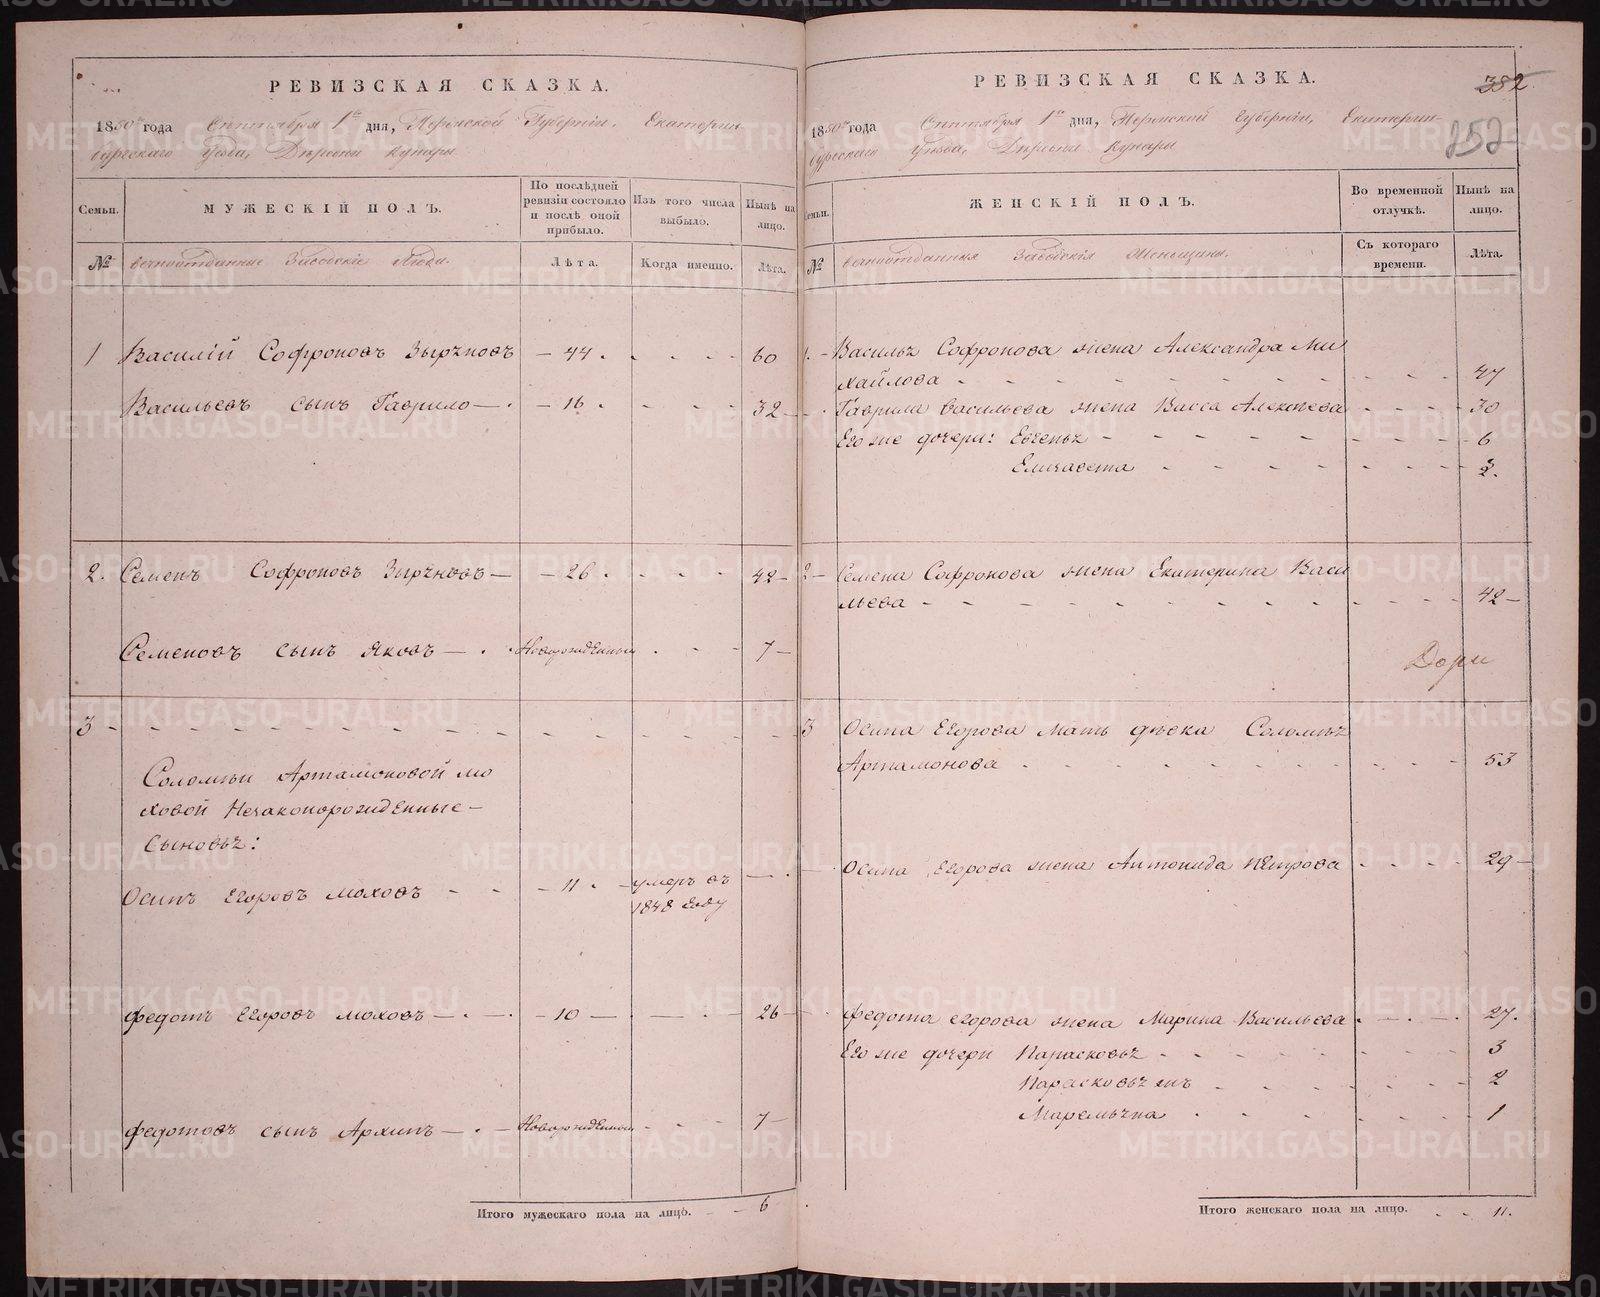 РЕВИЗСКАЯ СКАЗКА.
1850 года Сентября 1го дня, Пермской Губернiи, Екатерин
бургскаго Уѣзда, Деревни Кунары
Семьи.
МУЖЕСКIЙ ПОЛЪ.
По послѣдней ревизiи состояло и послѣ оной прибыло.
Изъ того числа выбыло.
Нынѣ на лицо.
№
вечноотданные Заводскiе Люди.
Лѣта.
Когда именно.
Лѣта.
1 Василiй Софроновъ Зырѣновъ - 44 . . . . - 60
Васильевъ сынъ Гаврило - . - 16 . - - - - 32
2. Семенъ Софроновъ Зырѣновъ - - 26 . - - - 42 -
Семеновъ сынъ Яковъ - . Новорожденный . - - 7 -
3 -
Соломѣи Артамоновой мо
ховой Незаконорожденные -
Сыновьѣ:
Осипъ Егоровъ Моховъ - - - 11 . - умеръ въ
1848 году
Федотъ Егоровъ Моховъ - . - . - 10 - - . - 26
Федотовъ сынъ Архипъ - . - Новорожденной - - - 7 -
Итого мужескаго пола на лицо. - - 6
РЕВИЗСКАЯ СКАЗКА.
382
1850 года Сентября 1го дня, Пермской Губернiи, Екатерин
бургскаго Уѣзда, Деревни Кунары
252
Семьи.
ЖЕНСКIЙ ПОЛЪ.
Во временной отлучкѣ.
Нынѣ на лицо.
№
вечноотданныя Заводскiя Женьщины.
Съ котораго времени.
Лѣта.
1. - Васильѣ Софронова жена Александра Ми
хайлова - - - - 47
Гаврила Васильева жена Васса Алексѣева - - - - 30
Его же дочери: Евгеньѣ - - - - 6
Елизавета - - - -
2 - Семена Софронова жена Екатерина Васи
льева - - - - 42 -
3 Осипа Егорова мать дѣвка Соломѣѣ
Артамонова . - - - 53
Осипа Егорова жена Антонида Петрова . - - - 29 -
Федота Егорова жена Марина Васильева . - . - . 27.
Его же дочери Парасковьѣ - - - - 3
Парасковьѣ жъ - - - - 2
Маремьѣна . - - - 1
Итого женскаго пола на лицо. - - 11.
METRIKI.GASO-URAL.RU